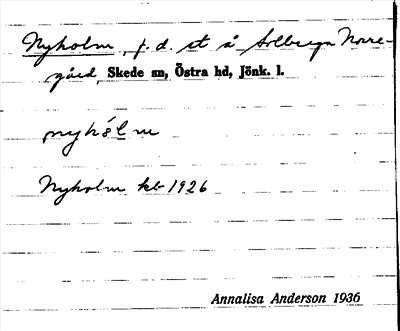 Nyholm, f.d. st å Solberga Norre-
gård, Skede sn, Östra hd, Jönk. l.
nyhólm
Nyholm kb 1926
Annalisa Anderson 1936